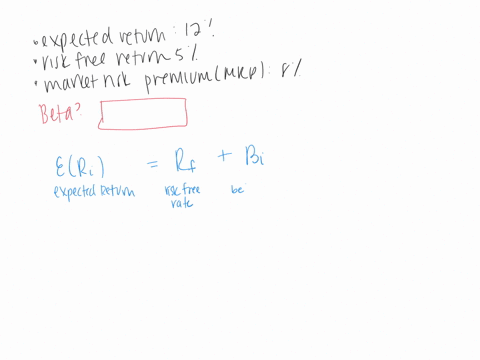 • expected return : 12%
• risk free return 5%
• market risk premium (MRP) : 8%
Beta?
E(Ri) = Rf + Bi
expected return risk free be
rate